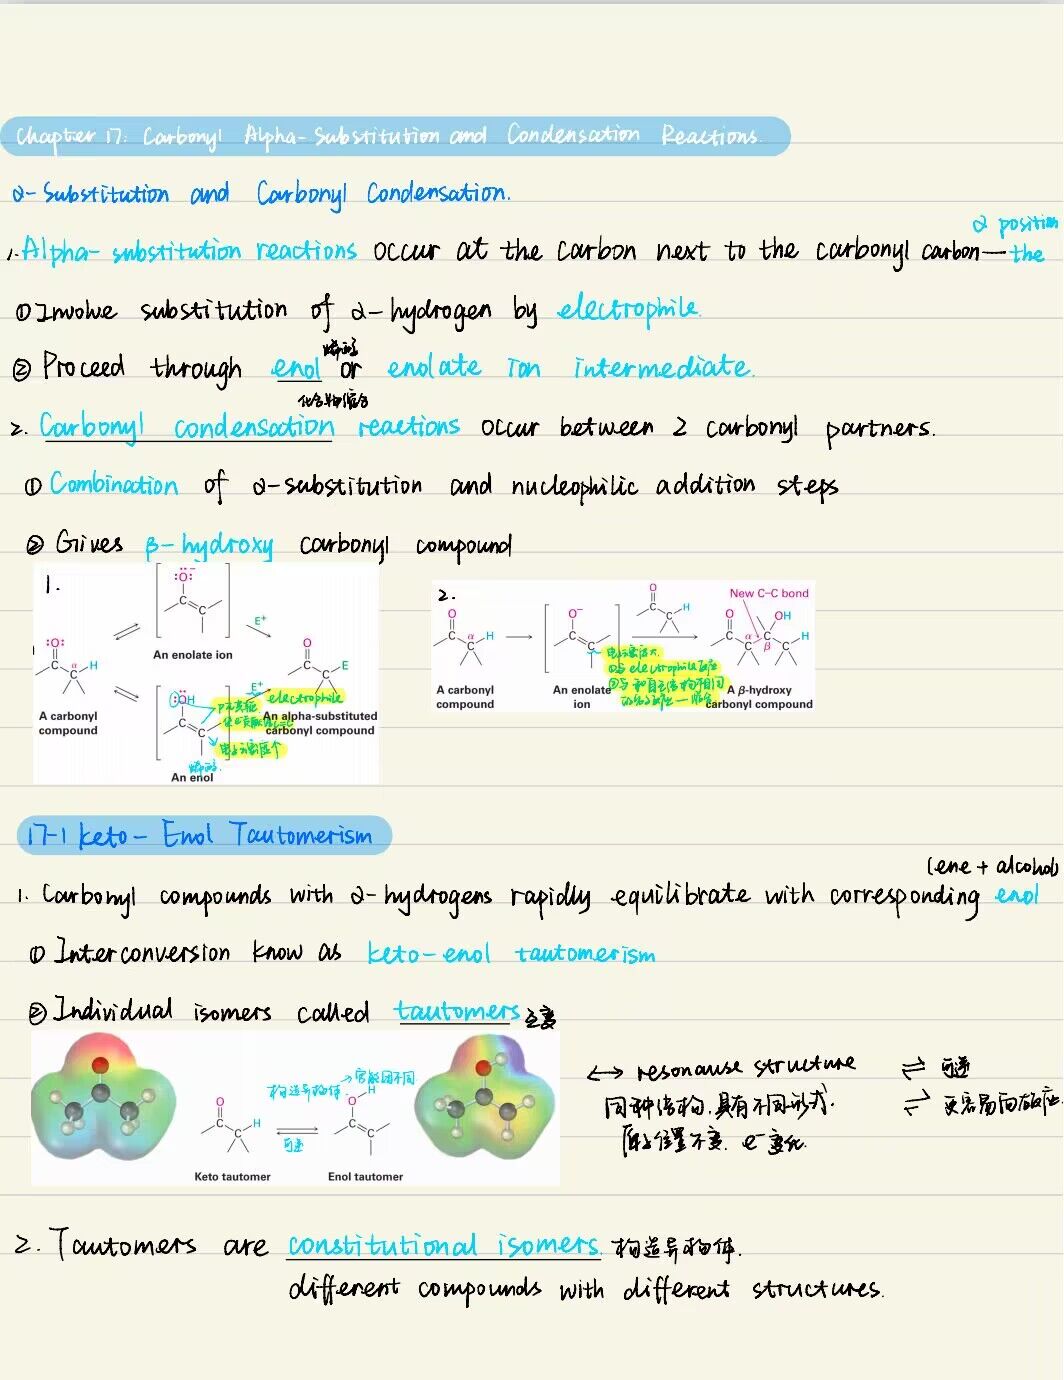 Chapter 17: Carbonyl Alpha-Substitution and Condensation Reactions.
α-Substitution and Carbonyl Condensation.
α position
1. Alpha-substitution reactions occur at the carbon next to the carbonyl carbon—the
① Involve substitution of α-hydrogen by electrophile.
烯醇
② Proceed through enol or enolate ion intermediate.
化合物缩合
2. Carbonyl condensation reactions occur between 2 carbonyl partners.
① Combination of α-substitution and nucleophilic addition steps
② Gives β-hydroxy carbonyl compound
1.
:O:⁻
C C
An enolate ion
E⁺
:O:
C α C H
A carbonyl
compound
O
C C E
An alpha-substituted
carbonyl compound
E⁺
electrophile
:OH
C C
烯醇
An enol
2.
O
C α C H
A carbonyl
compound
O⁻
C C
An enolate
ion
O
C C H
New C–C bond
O OH
C α C C H
β
A β-hydroxy
carbonyl compound
电子密度大.
①与electrophile反应
17-1 keto-Enol Tautomerism
(ene + alcohol)
1. Carbonyl compounds with α-hydrogens rapidly equilibrate with corresponding enol
① Interconversion know as keto-enol tautomerism
② Individual isomers called tautomers 互变
构造异构体 → 官能团不同
O
C C H
可逆
O H
C C
Keto tautomer
Enol tautomer
↔ resonause structure ⇌ 可逆
同种结构.具有不同形式. ⇌ 更容易向反应
原子位置不变. e⁻变化
2. Tautomers are constitutional isomers. 构造异构体.
different compounds with different structures.